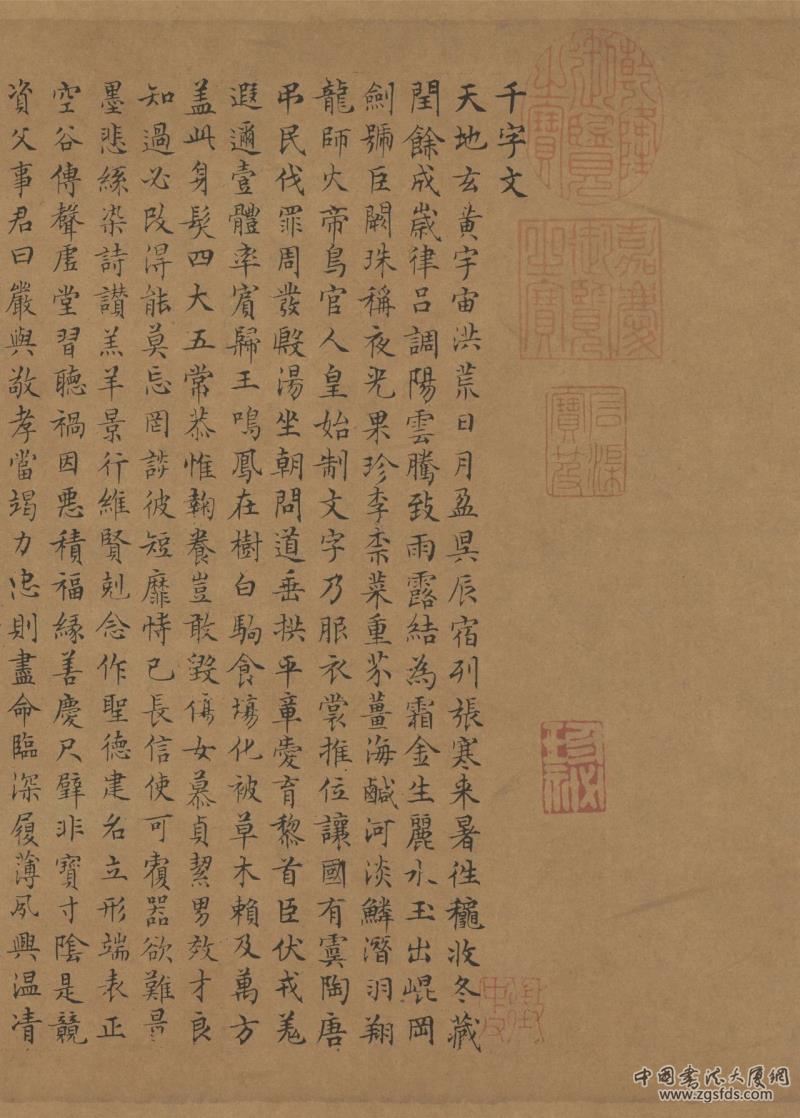 千字文
天地玄黃宇宙洪荒日月盈昃辰宿列張寒来暑往穐收冬藏
閏餘成歲律呂調陽雲騰致雨露結為霜金生麗水玉出崐岡
劍號巨闕珠稱夜光果珍李柰菜重芥薑海鹹河淡鱗潛羽翔
龍師火帝鳥官人皇始制文字乃服衣裳推位讓國有虞陶唐
弔民伐罪周發殷湯坐朝問道垂拱平章愛育黎首臣伏戎羌
遐邇壹體率賓歸王鳴鳳在樹白駒食場化被草木賴及萬方
盖此身髮四大五常恭惟鞠養豈敢毀傷女慕貞絜男效才良
知過必改得能莫忘罔談彼短靡恃己長信使可覆器欲難量
墨悲絲染詩讃羔羊景行維賢剋念作聖德建名立形端表正
空谷傳聲虛堂習聽禍因惡積福緣善慶尺璧非寶寸陰是競
資父事君曰嚴與敬孝當竭力忠則盡命臨深履薄夙興温凊
乾隆御覽之寶
嘉慶御覽之寶
石渠寶笈
珍祕
中國書法大厦網
www.zgsfds.com